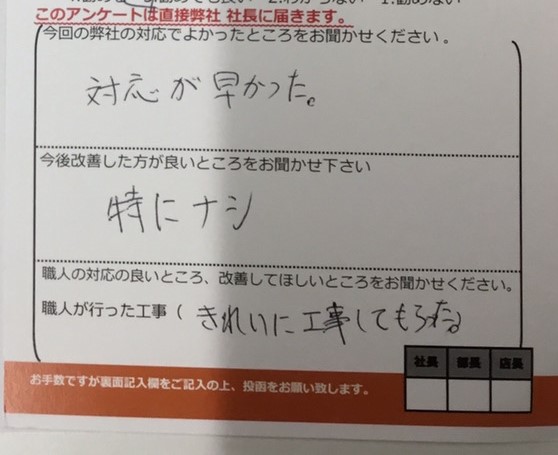 このアンケートは直接弊社 社長に届きます。
今回の弊社の対応でよかったところをお聞かせください。
対応が早かった。
今後改善した方が良いところをお聞かせ下さい
特にナシ
職人の対応の良いところ、改善してほしいところをお聞かせください。
職人が行った工事（きれいに工事してもらった）
社長 部長 店長
お手数ですが裏面記入欄をご記入の上、投函をお願い致します。